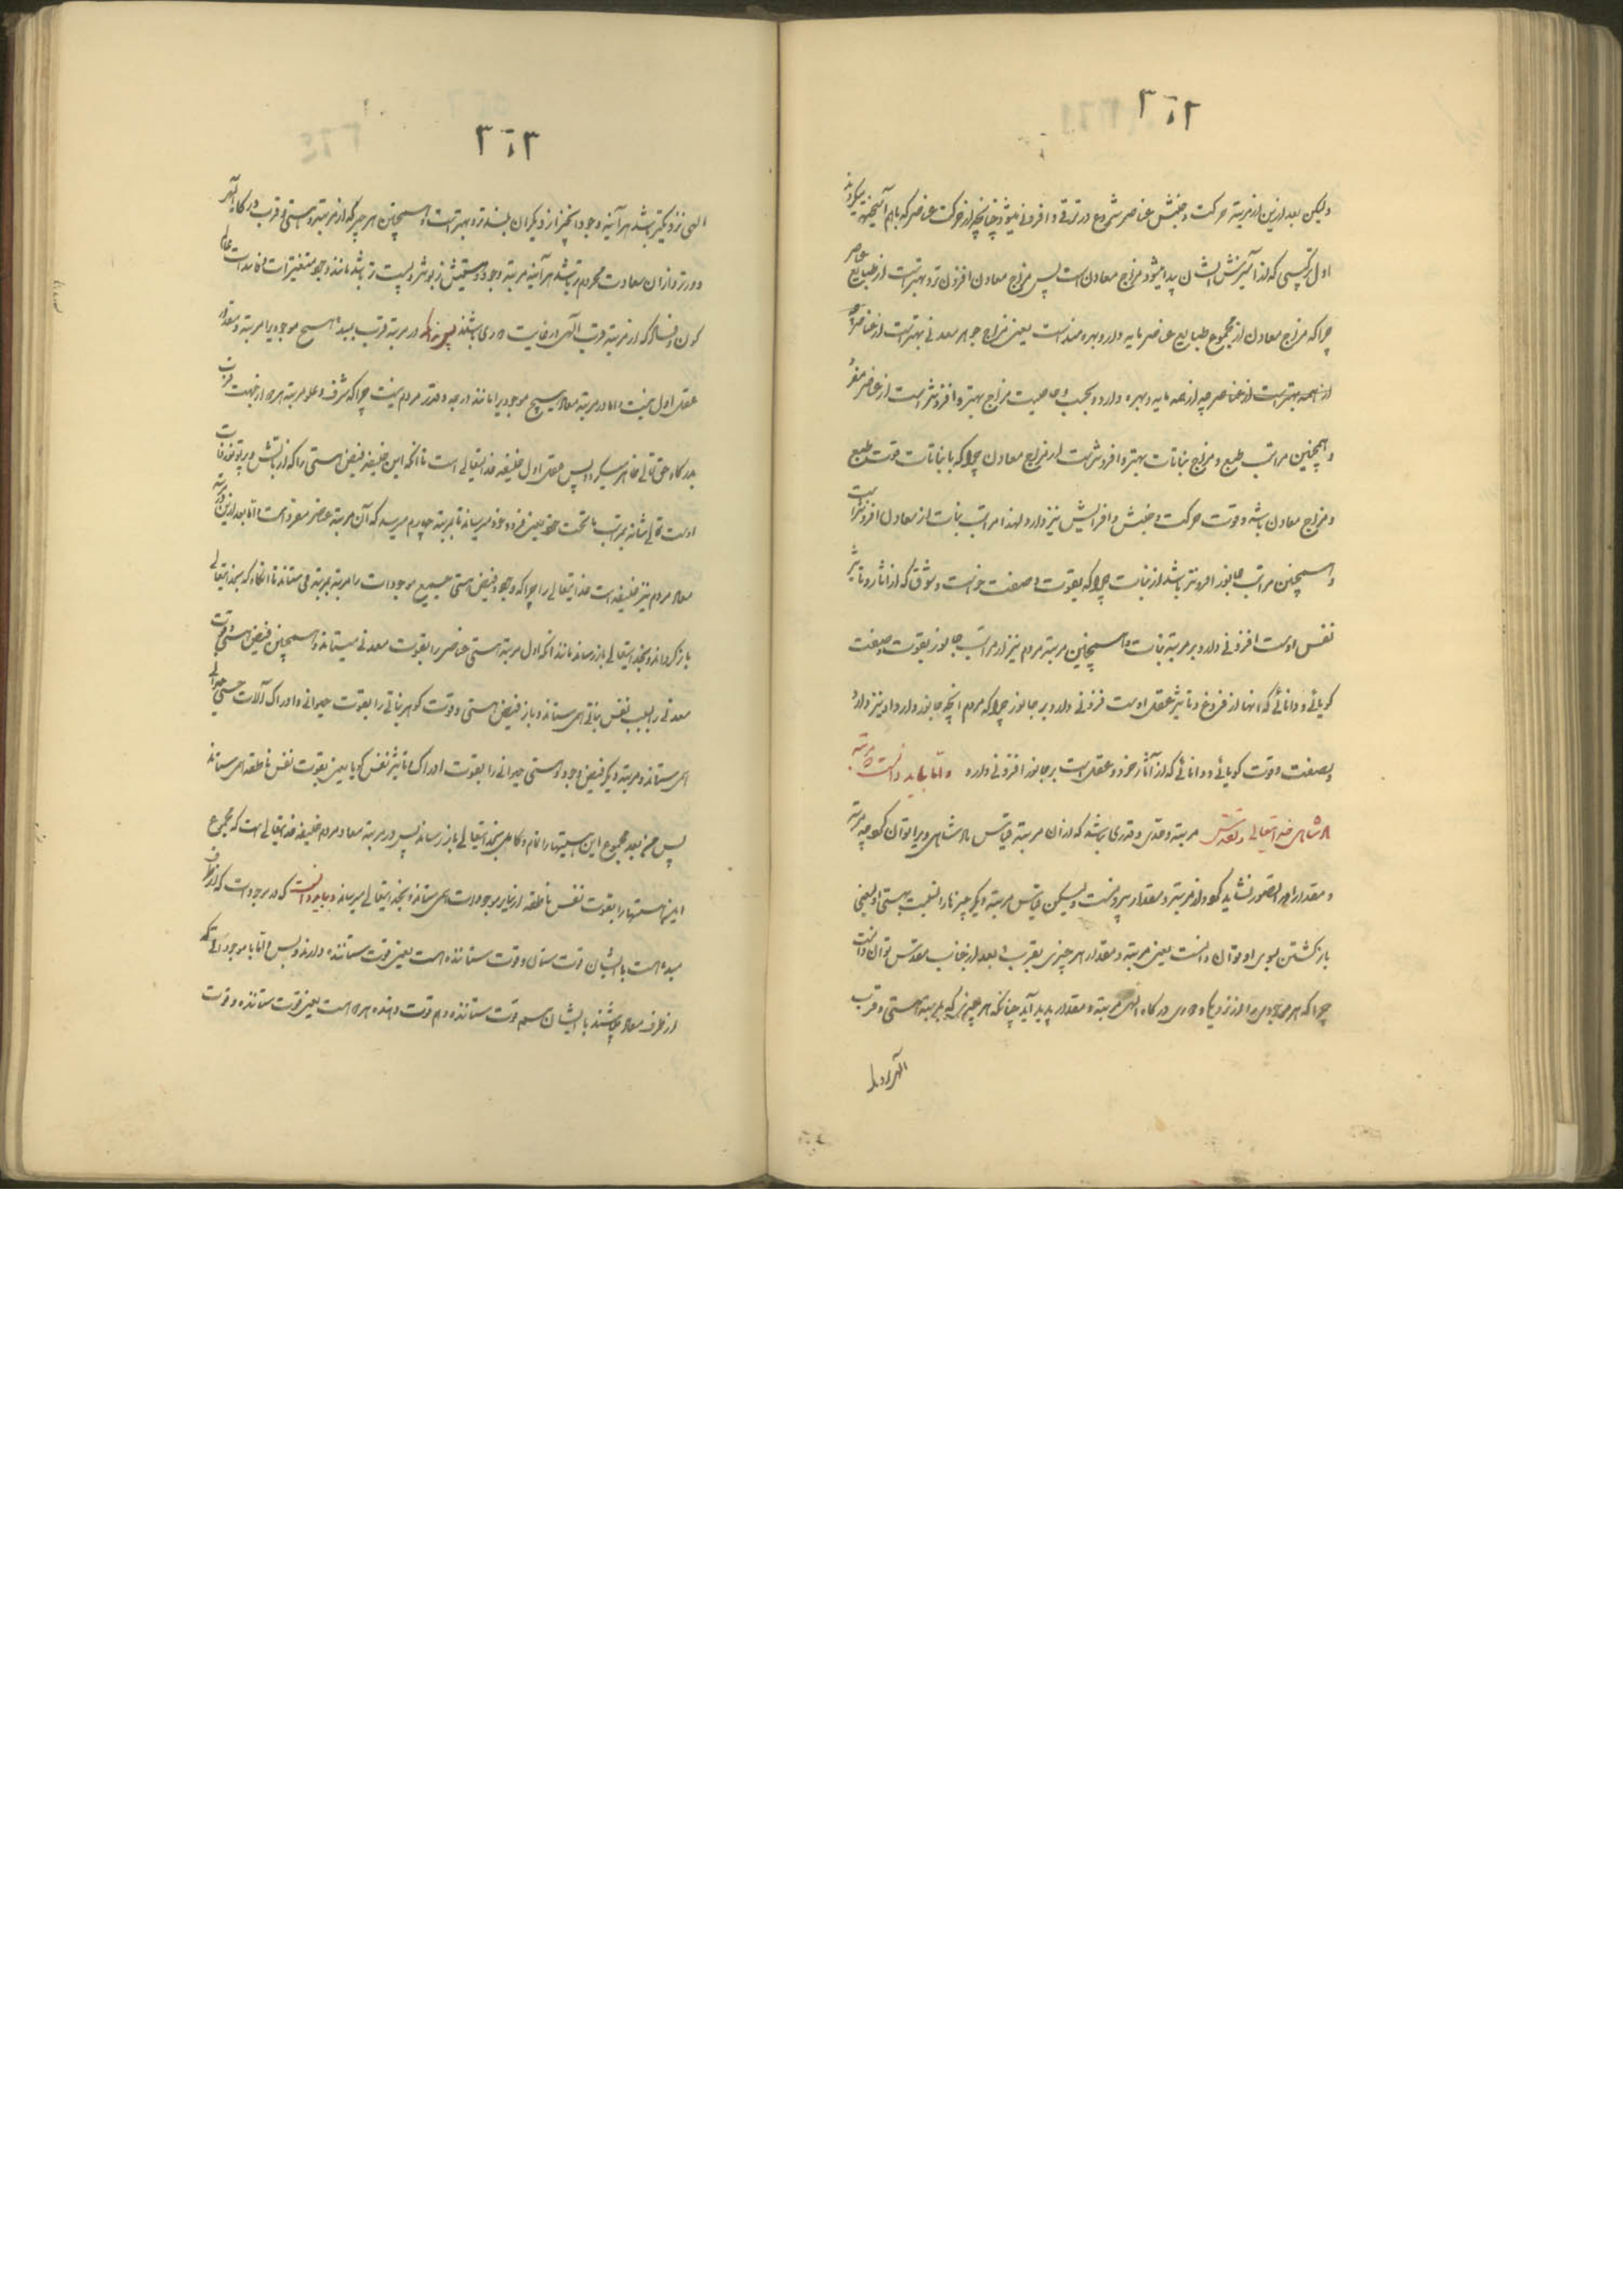 ولیکن بعد ازین از مرتبه حرکت و جنبش عناصر شروع در ترقی و افزونی میشود چنانچه از حرکت عناصر که باهم آمیخته میگردند
اول ترکیبی که از آمیزش ایشان پیدا میشود مزاج معادن است پس مزاج معادن افزون تر و بهتر است از طبایع عناصر
چرا که مزاج معادن از مجموع طبایع عناصر مایه دار و بهره مند است یعنی مزاج جوهر معدنی بهتر است از عناصر
از همه بهتر است از عناصر چه از همه مایه و بهره دارد و بحسب خاصیت مزاج بهتر و افزونتر است از عناصر مفرد
و همچنین مراتب طبع و مزاج نباتات بهتر و افزونتر است از مزاج معادن چرا که با نباتات قوت طبع
و مزاج معادن باشد و قوت حرکت و جنبش و افزایش نیز دارد و لهذا مراتب نبات از معادن افزونتر است
و همچنین مراتب جانور افزونتر باشد از نبات چرا که بقوت و صفت خواست و شوق که از آثار و تاثیر
نفس اوست افزونی دارد بر مرتبه نبات و همچنین مرتبه مردم نیز از مراتب جانور بقوت و صفت
گویائی و دانائی که آنها از فروغ و تاثیر عقل اوست فزونی دارد بر جانور چرا که مردم آنچه جانور دارد او نیز دارد
و بصفت و قوت گویائی و دانائی که از آثار خرد و عقل است بر جانور افزونی دارد و اما باید دانست مرتبه
شاهی خدایتعالی و تقدس مرتبه و حدی و قدری باشد که از آن مرتبه قیاس شاهی ویرا توان کرد چه مرتبه
و مقدار او تصور نشاید کرد و از مرتبه و مقدار بیرونست ولیکن قیاس مرتبه دیگر چیزها را نسبت بهستی او یعنی
بازگشتن بسوی او توان دانست یعنی مرتبه و مقدار هر چیزی بقرب و بعد از جناب مقدس توان دانست
چرا که هر موجودی را از نزدیکی و دوری درگاه الهی مرتبه و مقدار پدید آید چنانکه هر چیزی که بمرتبه هستی و قرب

الهی نزدیکتر باشد هر آینه وجود آنچیز از دیگران بلندتر و بهتر است و همچنین هر چیز که از مرتبه هستی و قرب درگاه الهی
دورتر و ازان سعادت محروم تر باشد هر آینه مرتبه وجود و هستیش زبونتر و پست تر باشد مانند وجود متغیرات و کاینات عالم
کون و فساد که از مرتبه قرب الهی در غایت دوری باشند پس چنانکه در مرتبه قرب بمبدء هیچ موجودیرا مرتبه و مقدار
عقل اول نیست اما در مرتبه معاد هیچ موجودیرا مانند درجه و قدر مردم نیست چرا که شرف و علو مرتبه هر دو از جهت قرب
بدرگاه حق تعالی ظاهر میگردد پس عقل اول خلیفه خدایتعالی است تا آنکه این خلیفه فیض هستی را که از تابش و پرتو نور ذات
اوست تعالی شانه بمراتب ما تحت خود یعنی فرود خود میرساند تا بمرتبه چهارم میرسد که آن مرتبه عناصر مفرد است اما بعد ازین در مرتبه
معاد مردم نیز خلیفه است خدایتعالی را چرا که وجود و فیض هستی جمیع موجودات را مرتبه بمرتبه می ستاند تا آنگاه که بخدایتعالی
باز گرداند و بخدایتعالی باز رساند مانند آنکه اول مرتبه هستی عناصر را بقوت معدنی میستاند و همچنین فیض هستی و قوت
معدنی را بسبب نفس نباتی می ستاند و باز فیض هستی و قوت گوهر نباتی را بقوت حیوانی و ادراک آلات حسی حیوانی
می ستاند و مرتبه دیگر فیض وجود و هستی حیوانی را بقوت ادراک و تاثیر نفس گویا یعنی بقوت نفس ناطقه می ستاند
پس من بعد مجموع این هستیها را تمام و کامل بخدایتعالی باز رساند پس در مرتبه معاد مردم خلیفه خدایتعالی است که مجموع
این هستیها را بقوت نفس ناطقه از سایر موجودات می ستاند و بخدایتعالی میرساند و باید دانست که در موجودات که از طرف
مبدء است با ایشان قوت ستانی و قوت ستاننده است یعنی قوت ستاننده دارند و بس و اما با موجوداتی که
از طرف معاد باشند با ایشان هم قوت ستاننده و هم قوت دهنده هر دو است یعنی قوت ستاننده و قوت